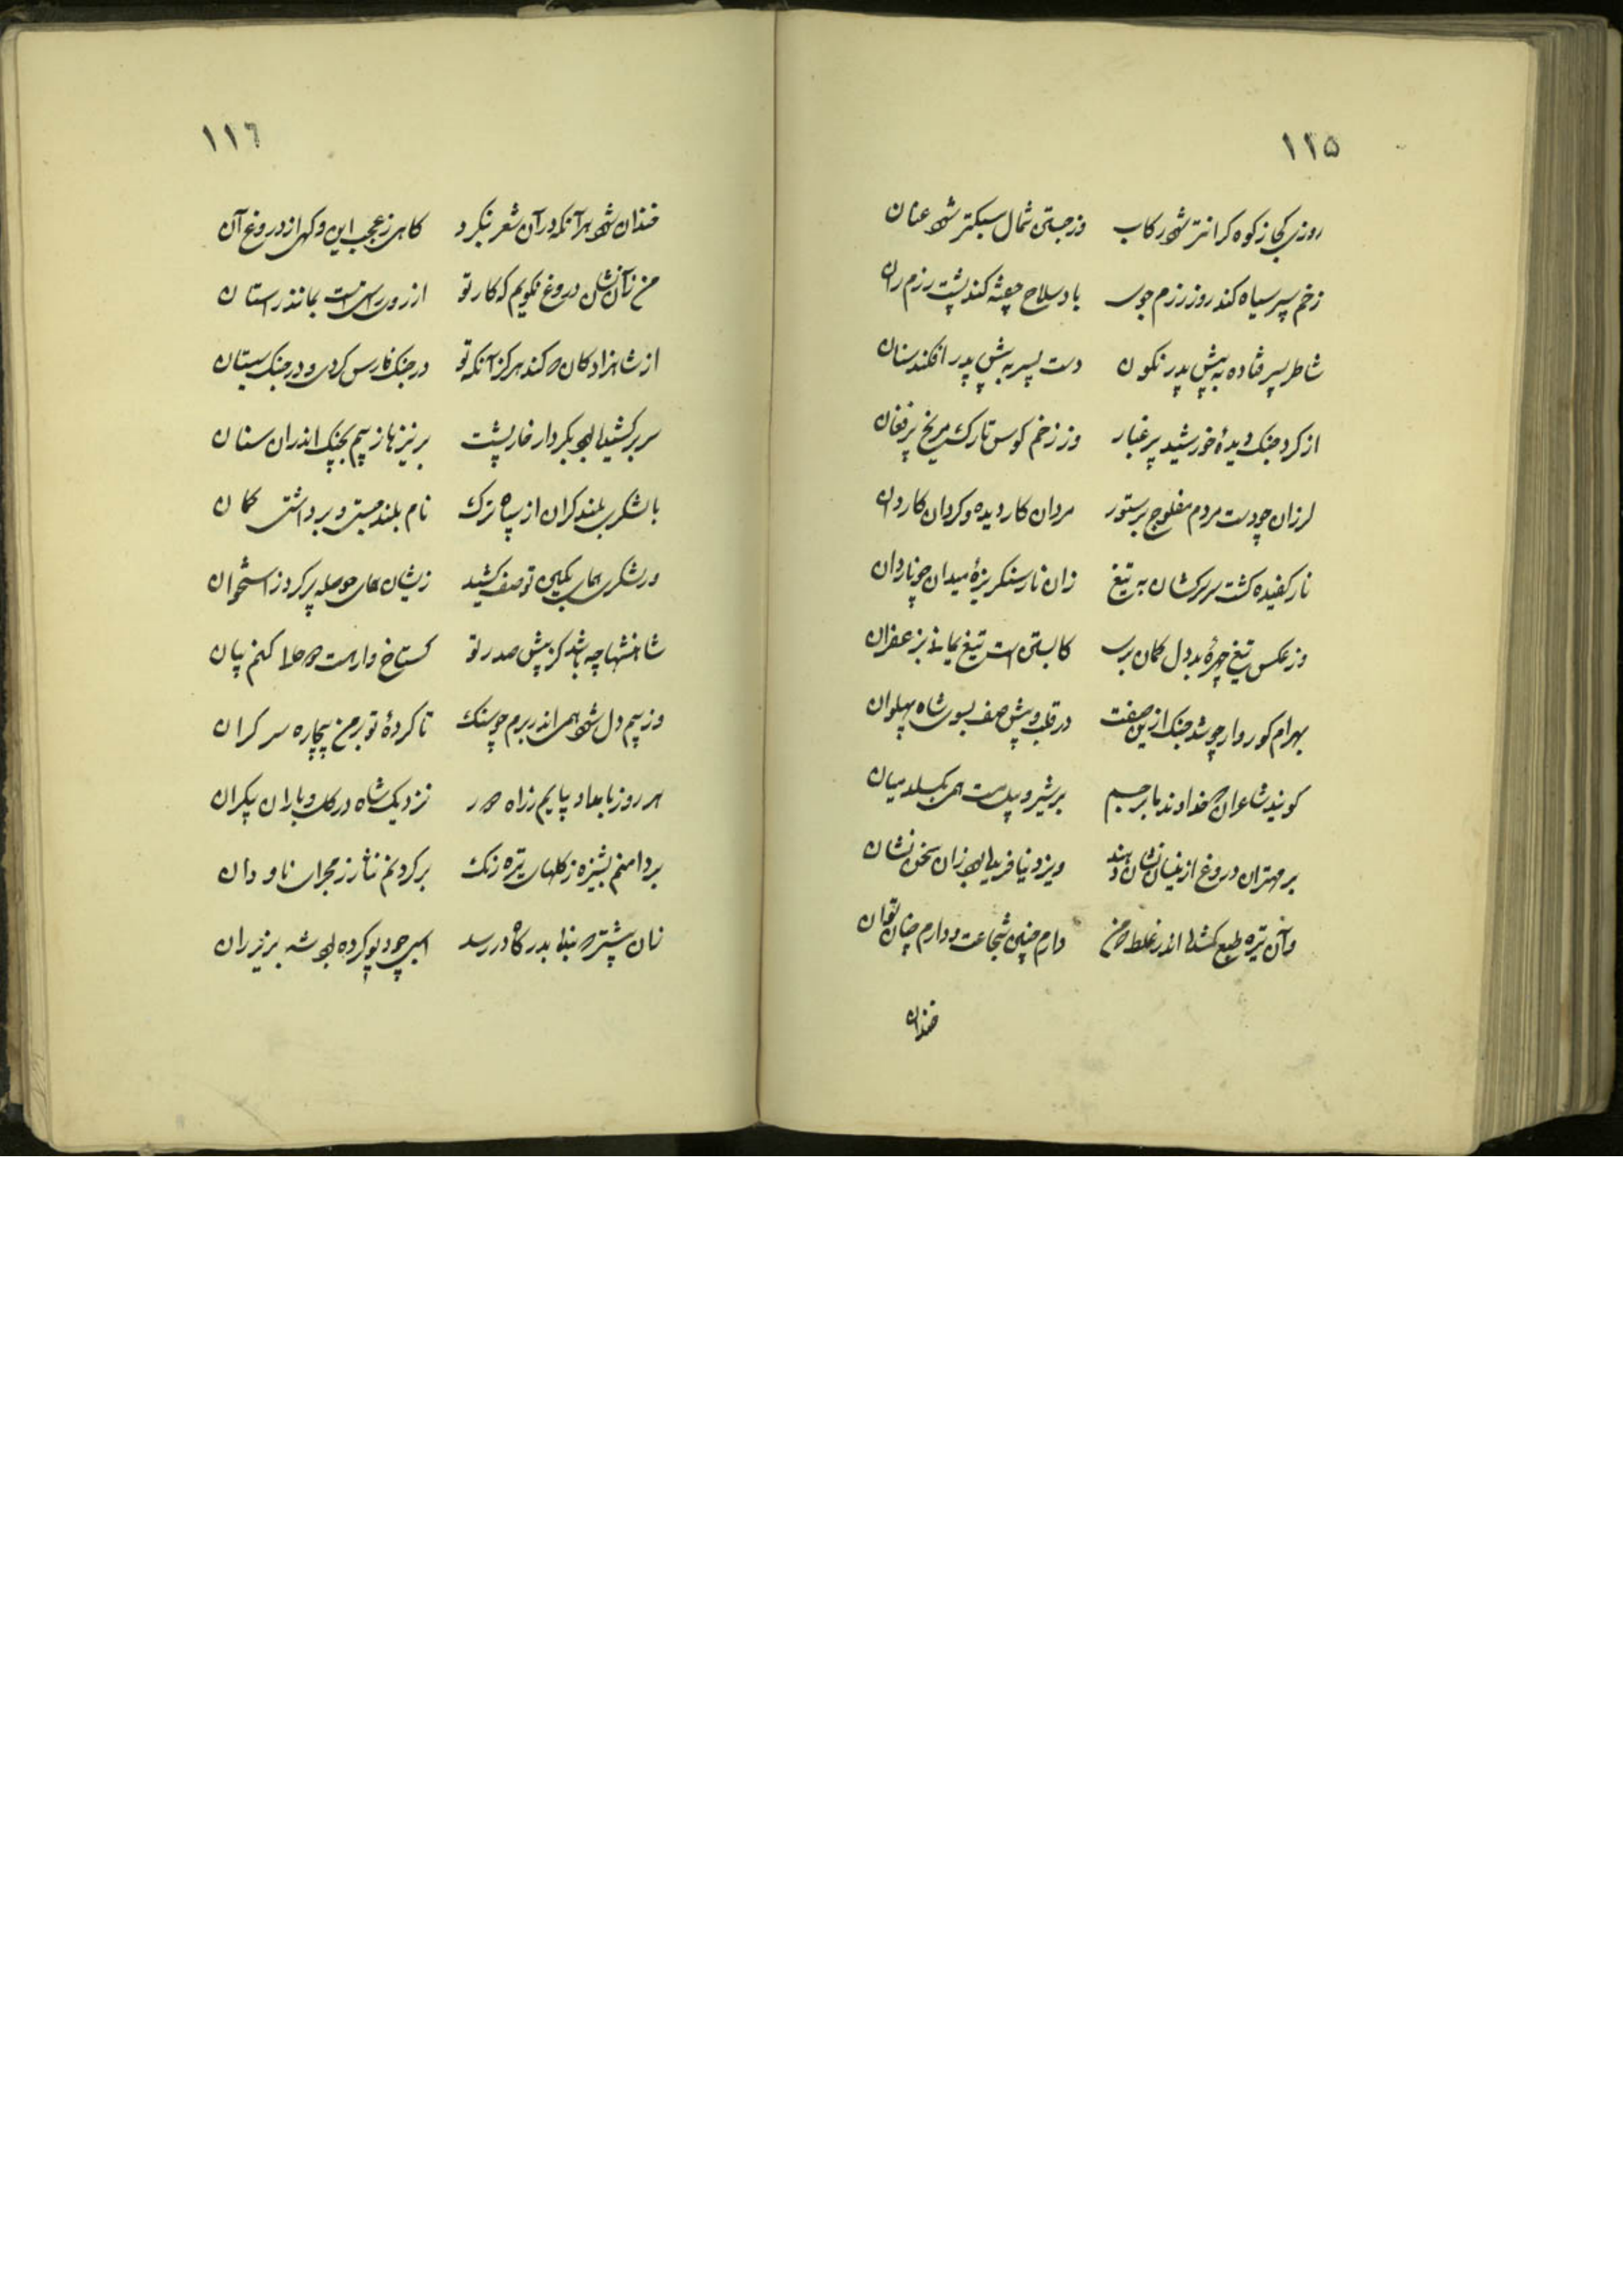 ۱۱۵
روزی کجا ز کوه کرانتر شود رکاب وز جستی شمال سبکتر شود عنان
زخم سپر سیاه کند روز رزم جوی باد سلاح کند پشت رزم ران
شاطر پسر فتاده به پیش پدر نکون دست پسر به پیش پدر افکند سنان
از کرد جنک دیدهٔ خورشید پر غبار وز زخم کوس تارک مریخ پر فغان
لرزان چو دست مردم مفلوج بر ستور مردان کار دیده و کردان کاردان
نار کفیده کشت سر سرکشان به تیغ زان نار سنکریزهٔ میدان چو ناردان
وز عکس تیغ چهرهٔ بد دل کمان بری کابستی است تیغ یمانی بزعفران
بهرام کور وار چو شد جنک ازین صفت در قلب و پیش صف بسوی شاه پهلوان
کویند شاعران خداوند ما برجسم بر شیر و پیل دست همی بکسلد میان
بر مهتران دروغ ازینسان نشان دهند ویزد نیافرید بود زان سخن نشان
وآن تیره طبع کمشده اندر غلط که من دارم چنین شجاعت و دارم چنان توان
خندان
۱۱٦
خندان شود هر آنکه در آن شعر بنکرد کاهی ز عجب این و کهی از دروغ آن
من زآن نشان دروغ نکویم که کار تو از روی راستیست بمانند راستان
از شاهزادکان که کند هرکز آنکه تو در جنک فارس کردی و در جنک سیستان
سر بر کشیده بود بکردار خارپشت بر نیزها ز بیم بجنک اندران سنان
با لشکری بلند کران از سپاه ترک نام بلند جستی و برداشتی کمان
ور لشکری همای بکین تو صف کشید زیشان همای حوصله پر کرد ز استخوان
شاهنشها چه باشد کز پیش صدر تو کستاخ وار صحت حالی کنم بیان
وز بیم دل شود همی اندر برم چو سنک تا کردهٔ تو بر من بیچاره سر کران
هر روز بامداد بیایم ز راه دور نزدیک شاه در کل و باران بیکران
بر دامنم پشیزه ز کلهای تیره رنک بر کردنم نثار ز مجرای ناودان
زان پیشتر که بنده بدرکاه در رسد اسبی چو دیو کرده بود شه بزیر ران